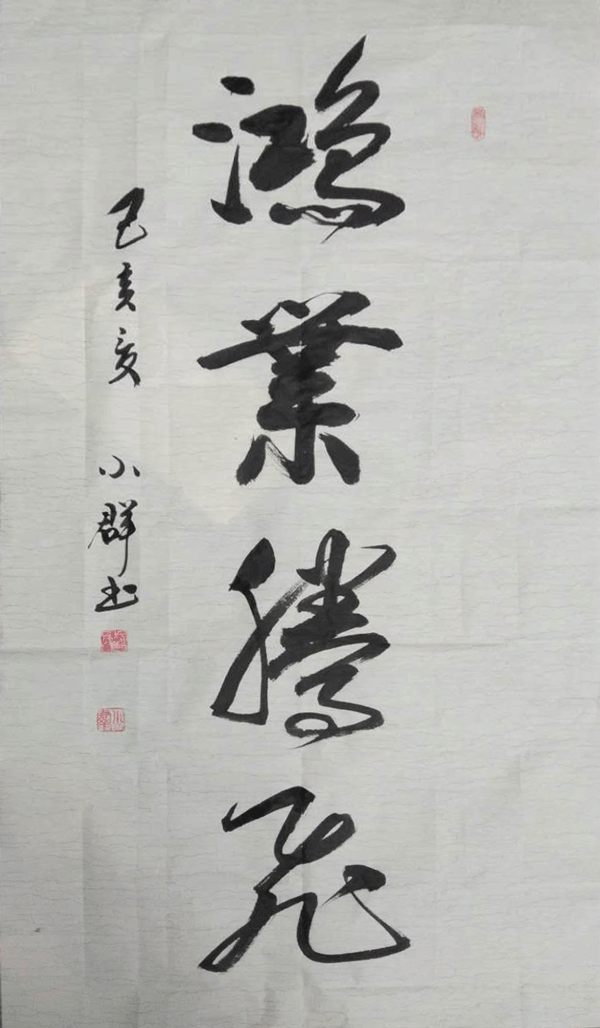 鴻業騰飛
己亥夏 小群书